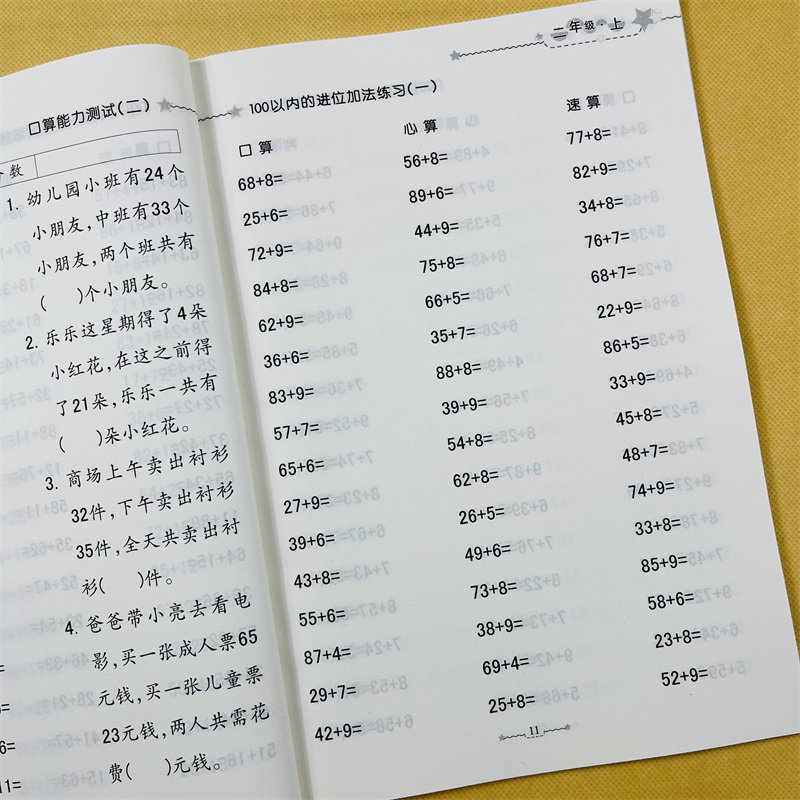 口算能力测试(二)
分数
1. 幼儿园小班有24个
小朋友,中班有33个
小朋友,两个班共有
(    )个小朋友。
2. 乐乐这星期得了4朵
小红花,在这之前得
了21朵,乐乐一共有
(    )朵小红花。
3. 商场上午卖出衬衫
32件,下午卖出衬衫
35件,全天共卖出衬
衫(    )件。
4. 爸爸带小亮去看电
影,买一张成人票65
元钱,买一张儿童票
23元钱,两人共需花
费(    )元钱。
二年级·上
100以内的进位加法练习(一)
口算
68+8=
25+6=
72+9=
84+8=
62+9=
36+6=
83+9=
57+7=
65+6=
27+9=
39+6=
43+8=
55+6=
87+4=
29+7=
42+9=
心算
56+8=
89+6=
44+9=
75+8=
66+5=
35+7=
88+8=
39+9=
54+8=
62+8=
26+5=
49+6=
73+8=
38+9=
69+4=
25+8=
速算
77+8=
82+9=
34+8=
76+7=
68+7=
22+9=
86+5=
33+9=
45+8=
48+7=
74+9=
33+8=
85+9=
58+6=
23+8=
52+9=
11